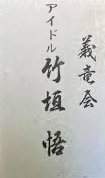 義竜会
アイドル
竹垣悟